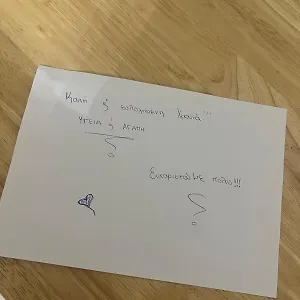 Καλή & ευλογημένη Χρονιά!!!
ΥΓΕΙΑ & ΑΓΑΠΗ
Ευχαριστούμε πολύ!!!